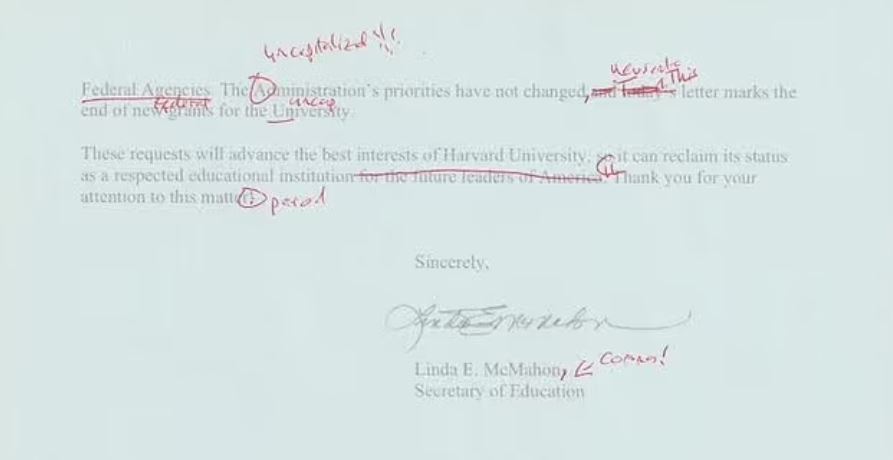 uncapitalized!!!
This
Federal Agencies. The Administration's priorities have not changed, and today's letter marks the
Federal uncap
end of new grants for the University.
These requests will advance the best interests of Harvard University, so it can reclaim its status
as a respected educational institution for the future leaders of America. Thank you for your
attention to this matter. period
Sincerely,
Linda E. McMahon, comma!
Secretary of Education